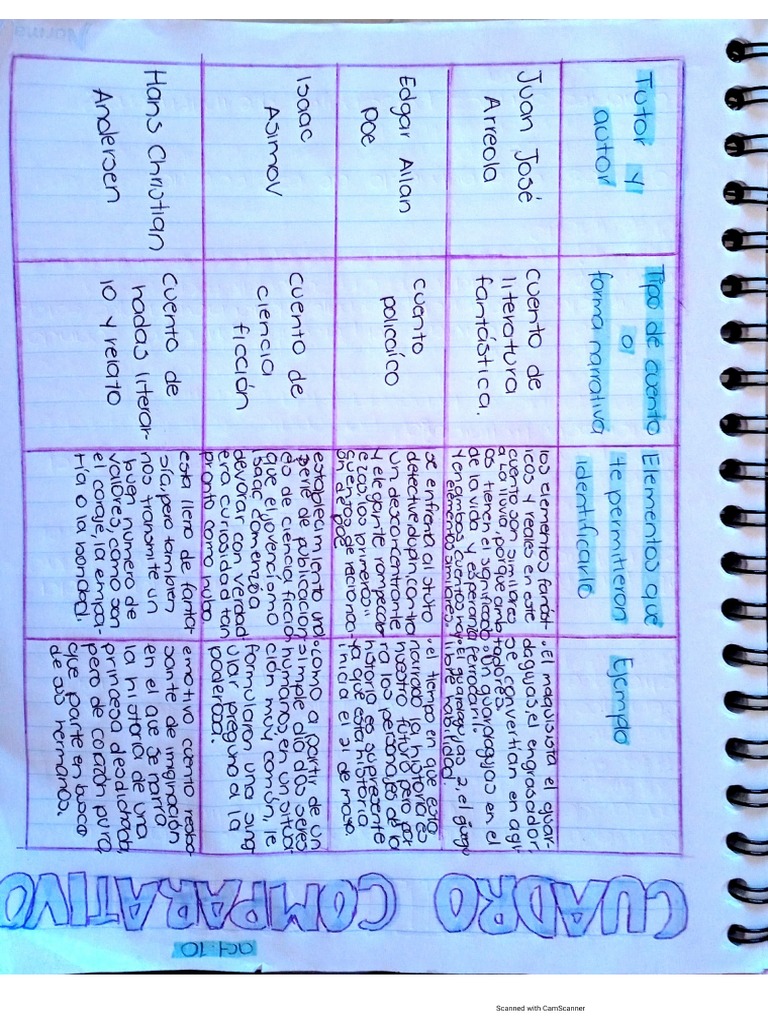 CUADRO COMPARATIVO
act. 10
Tutor y
autor
Tipo de cuento
o
forma narrativa
Elementos que
te permitieron
identificarlo
Ejemplo
Juan José
Arreola
cuento de
literatura
fantástica.
los elementos fanást-
icos y reales en este
cuento son similares
a la lluvia, porque amb
os tienen el significado
de la vida y esperanza
y en ambos cuentos hay
elementos similares.
•El maquinista el guar-
deguias, el engrasador
se convertian en agi-
tadores.
ferrocarril.
libre habilidad.
Edgar Allan
Poe
cuento
policaíco
se enfrenta al stuto
detective dupin, contra
un desconcentrante
y elegante rompecab
ezas, los primeros
cuentos de raciona-
ón de poe
•el tiempo en que esta
narrado la historia es
nuestro futuro pero par
ra los personajes de la
historia es su presente
ya que esta historia
inicia el 21 de mayo
Isaac
Asimov
cuento de
ciencia
ficción
establecimiento una
serie de publicacion
es de ciencia ficción
que el joven cómo
Isaac comenzía
devorar con verdad
era curiosidad tan
pronto como hubo
•como a partir de un
simple día dos seres
humanos, en un situa
ción muy común, le
formularon una sing
ular pregunta a la
poderosa.
Hans Christian
Andersen
cuento de
hadas literar-
io y relato
esta lleno de fanta-
sía, pero también
nos transmite un
buen numero de
valores, como son
el coraje, la empa-
tía o la bondad.
emotivo cuento rebo-
sante de imiginación
en el que se narra
la historia de una
princesa desdichada,
pero de corazón puro,
que parte en busca
de sus hermanos.
Scanned with CamScanner